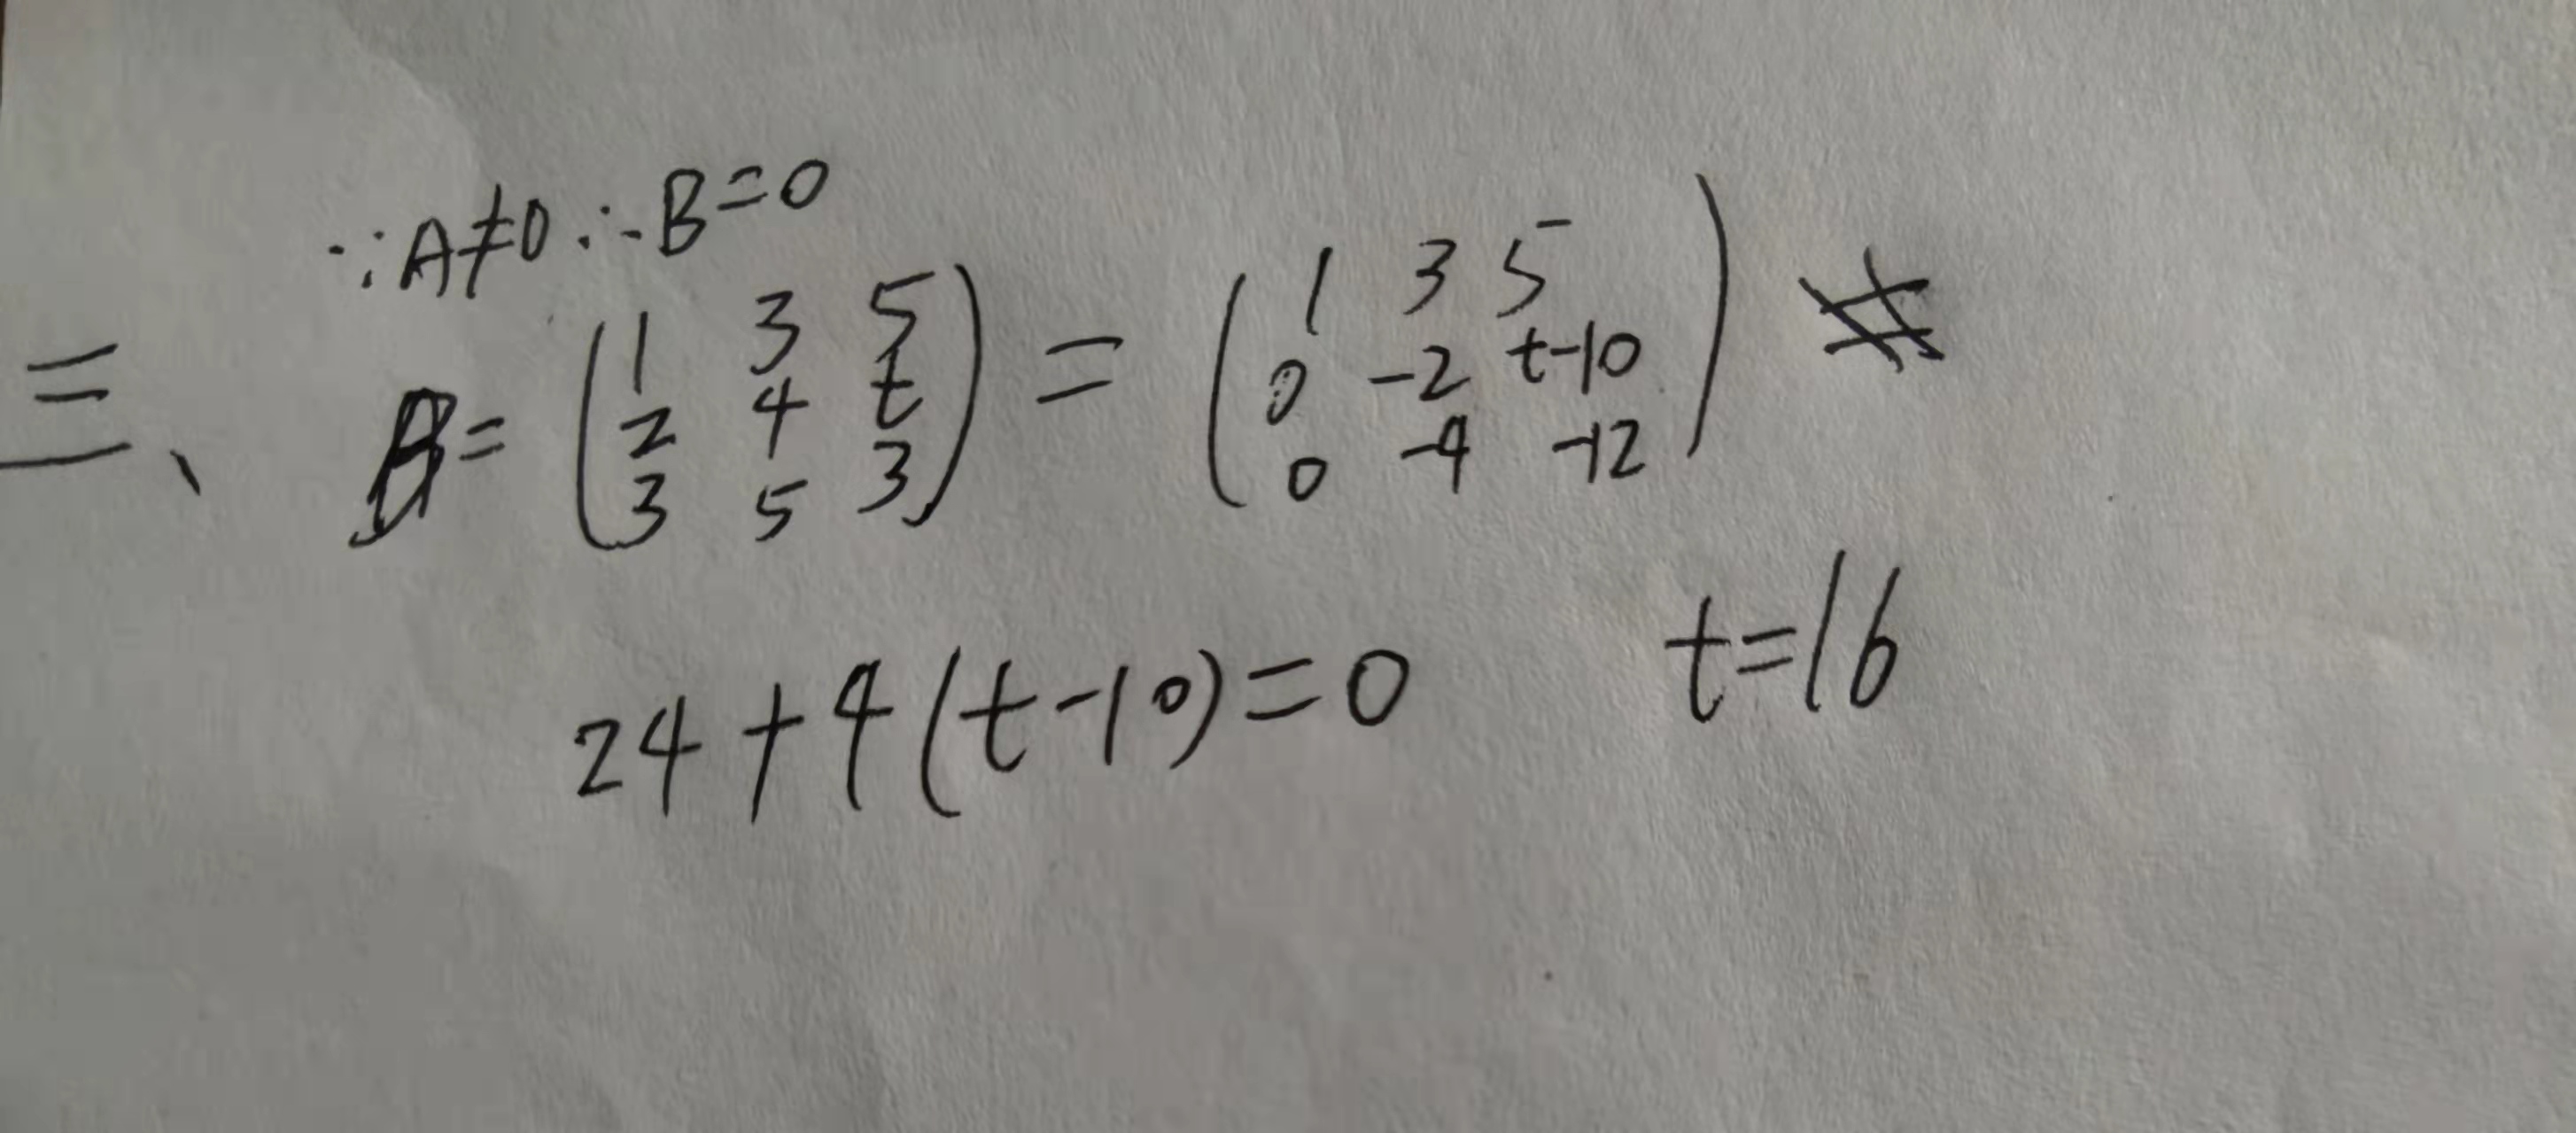 ∵A≠0 ∴B=0
三、 B= (1 3 5
2 4 t
3 5 3) = (1 3 5
0 -2 t-10
0 -4 -12)
24+4(t-10)=0 t=16